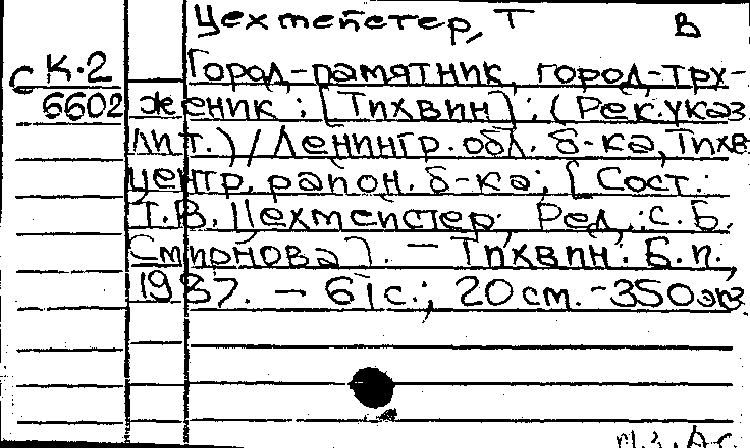 Цехмейстер, Т В
С К-2 Город-памятник, город-тру-
6602 женик : [Тихвин] : (Рек. указ.
лит.) / Ленингр. обл. б-ка, Тихв.
центр. район. б-ка; [Сост.:
Т.В. Цехмейстер; Ред.: С.Б.
Смирнова]. — Тихвин: Б.и.,
1987. — 61 с.; 20 см. - 350 экз.